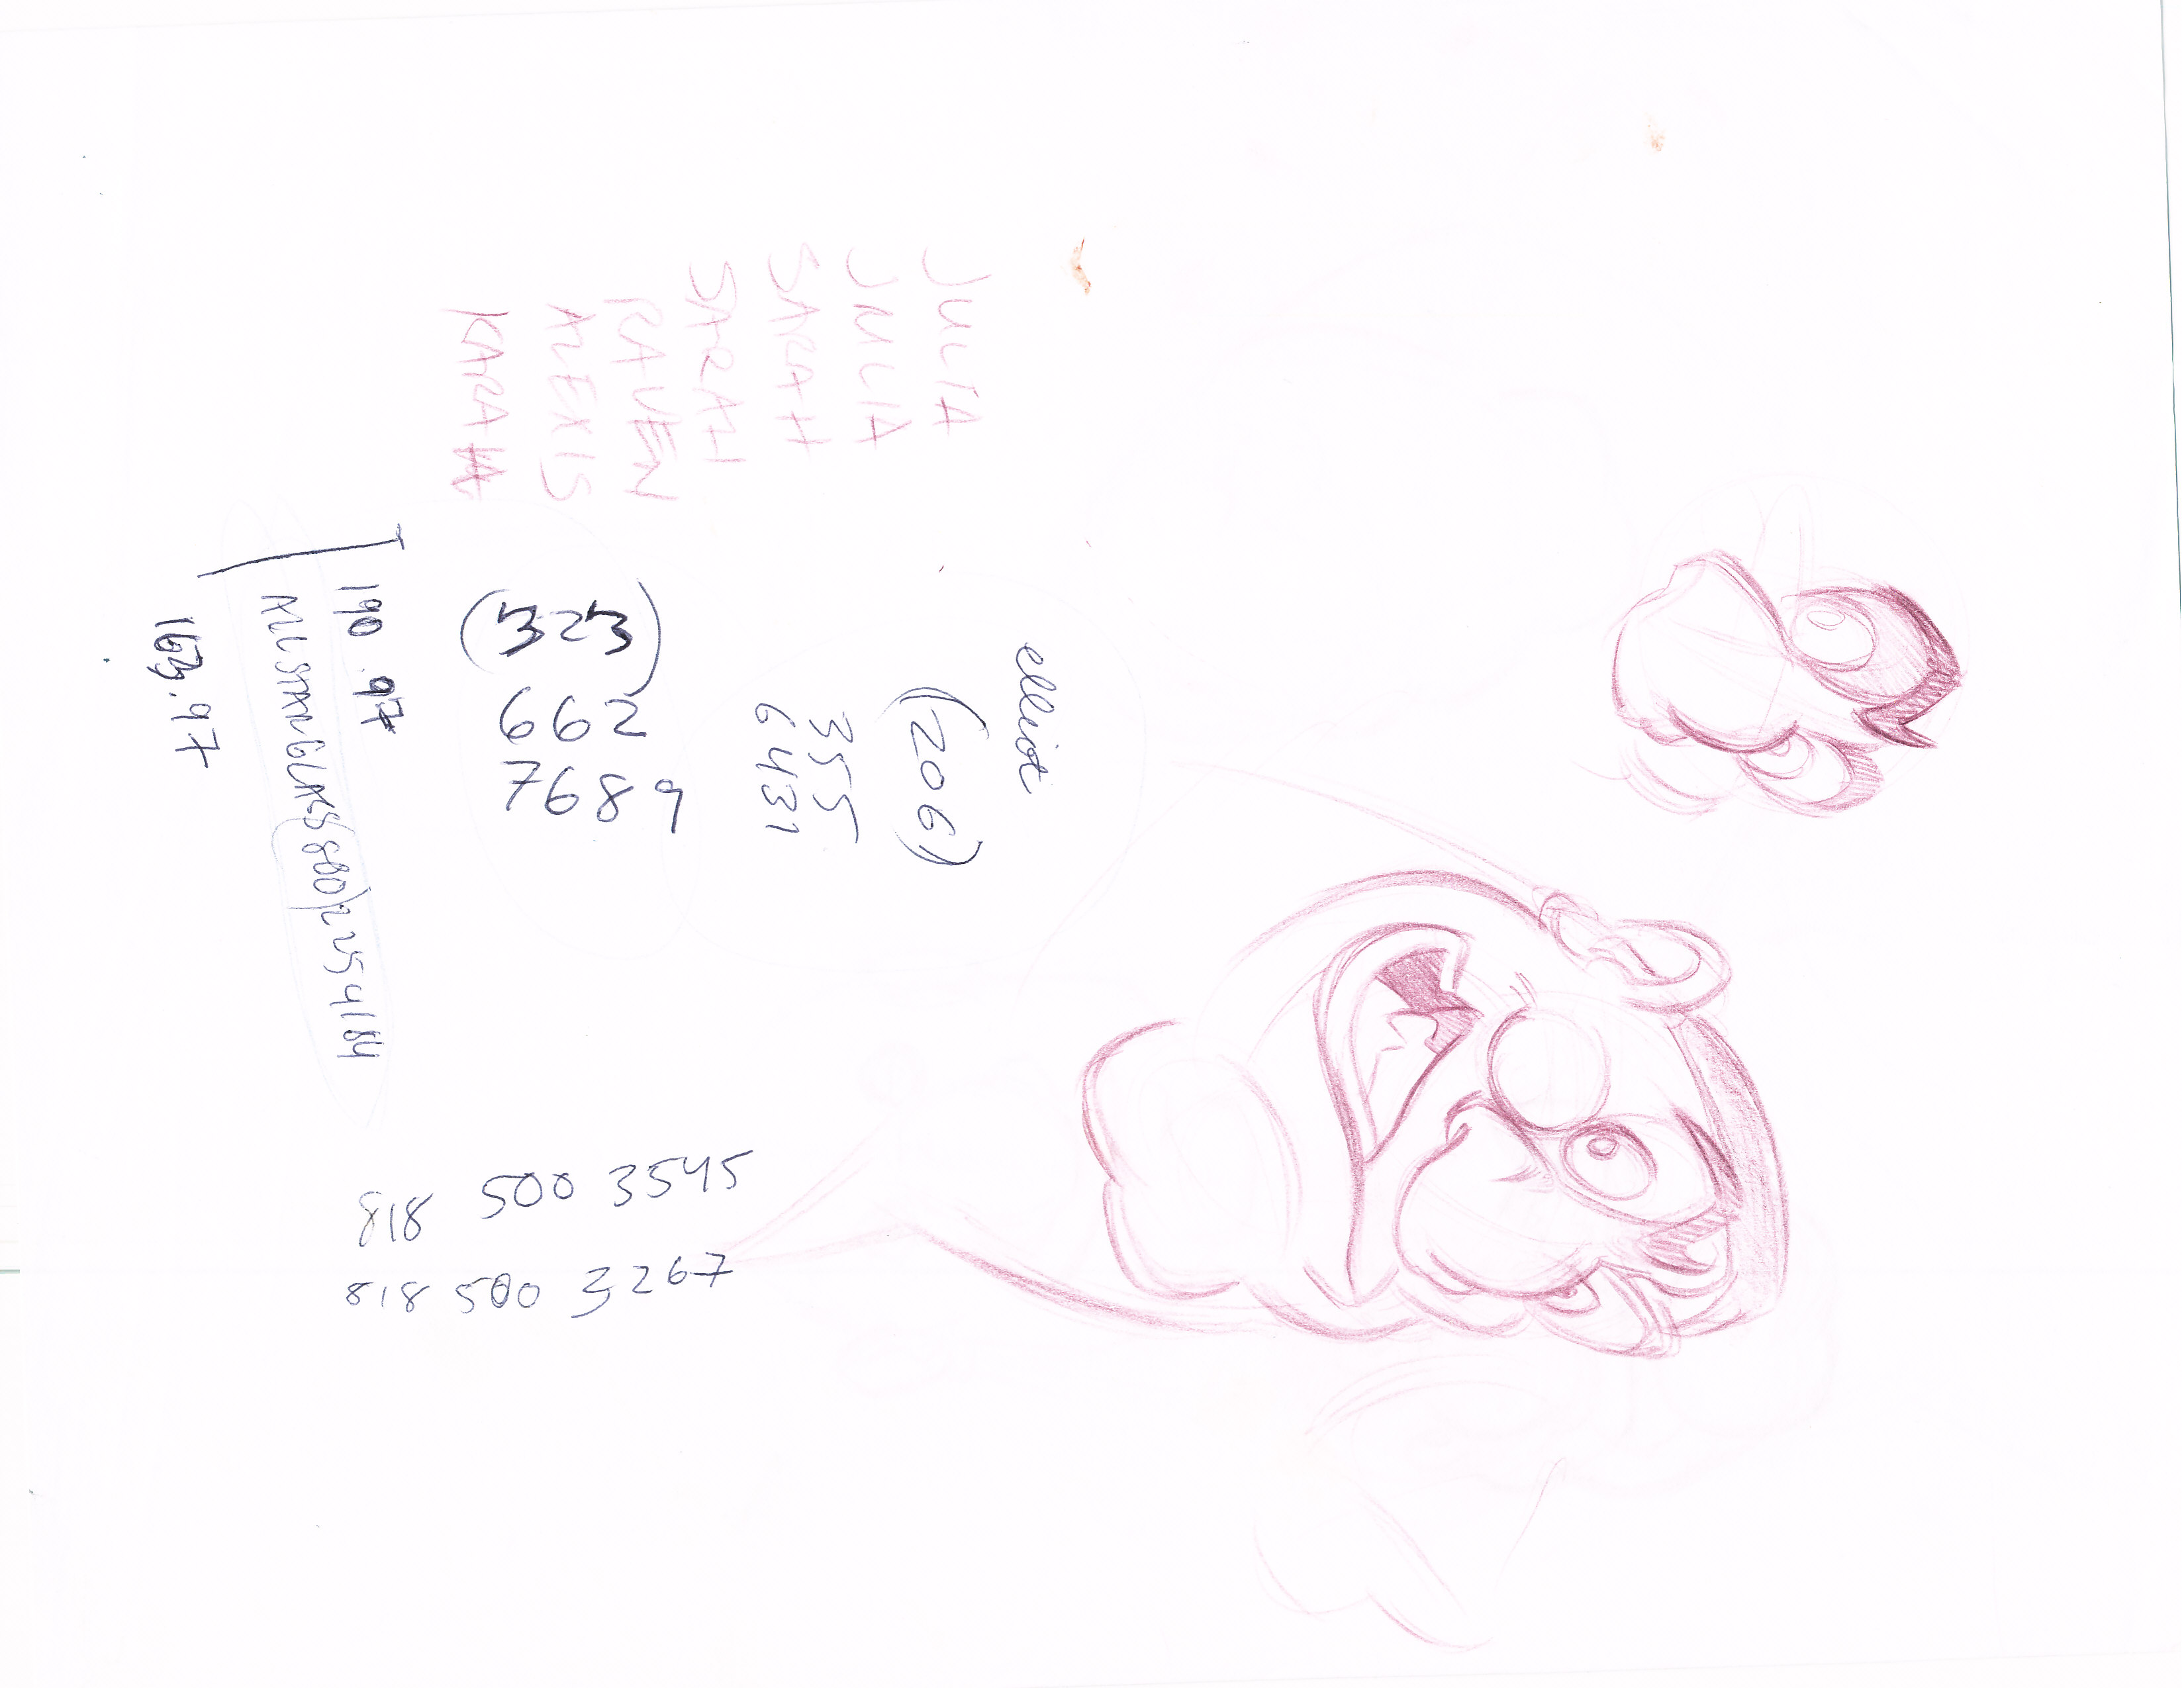 JULIA
JULIA
SARAH
SARAH
RAVEN
ALEXIS
KARA
elliot
(206)
355
6431
(323)
662
7689
190.97
ALLSTAR GLASS (800) 2254184
163.97
818 500 3545
818 500 3267